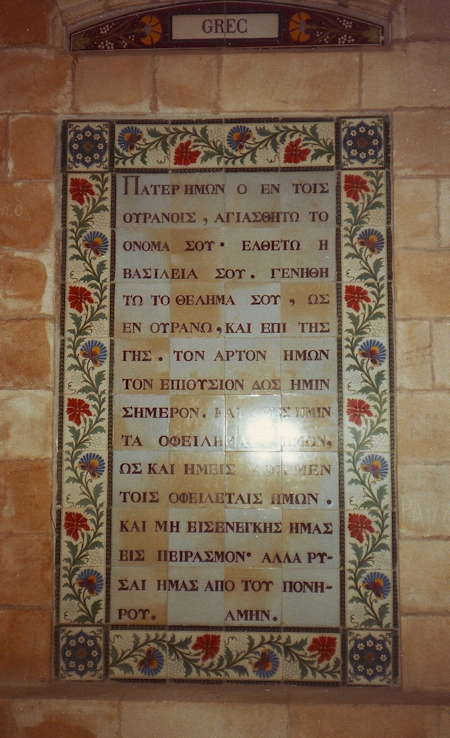 GREC
ΠΑΤΕΡ ΗΜΩΝ Ο ΕΝ ΤΟΙΣ
ΟΥΡΑΝΟΙΣ, ΑΓΙΑΣΘΗΤΩ ΤΟ
ΟΝΟΜΑ ΣΟΥ· ΕΛΘΕΤΩ Η
ΒΑΣΙΛΕΙΑ ΣΟΥ. ΓΕΝΗΘΗ
ΤΩ ΤΟ ΘΕΛΗΜΑ ΣΟΥ, ΩΣ
ΕΝ ΟΥΡΑΝΩ, ΚΑΙ ΕΠΙ ΤΗΣ
ΓΗΣ. ΤΟΝ ΑΡΤΟΝ ΗΜΩΝ
ΤΟΝ ΕΠΙΟΥΣΙΟΝ ΔΟΣ ΗΜΙΝ
ΣΗΜΕΡΟΝ. ΗΜΙΝ
ΤΑ ΗΜΩΝ.
ΩΣ ΚΑΙ ΗΜΕΙΣ
ΤΟΙΣ ΟΦΕΙΛΕΤΑΙΣ ΗΜΩΝ.
ΚΑΙ ΜΗ ΕΙΣΕΝΕΓΚΗΣ ΗΜΑΣ
ΕΙΣ ΠΕΙΡΑΣΜΟΝ· ΑΛΛΑ ΡΥ-
ΣΑΙ ΗΜΑΣ ΑΠΟ ΤΟΥ ΠΟΝΗ-
ΡΟΥ. ΑΜΗΝ.